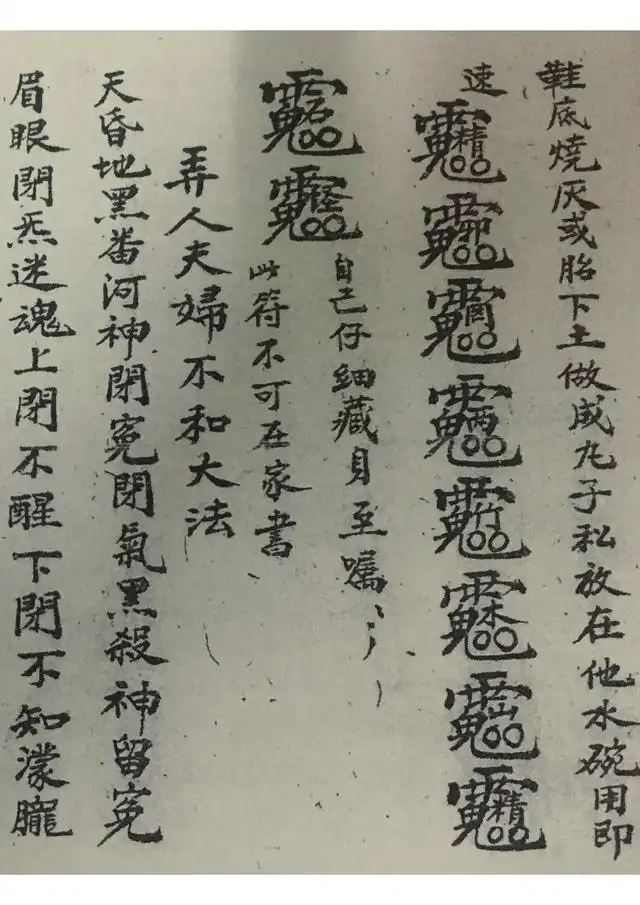 鞋底燒灰或胎下土做成丸子私放在他水碗用即
速
自己仔細藏身至囑
此符不可在家書
弄人夫婦不和大法
天昏地黑番河神閉冤閉氣黑殺神留冤
眉眼閉炁迷魂上閉不醒下閉不知濛朧